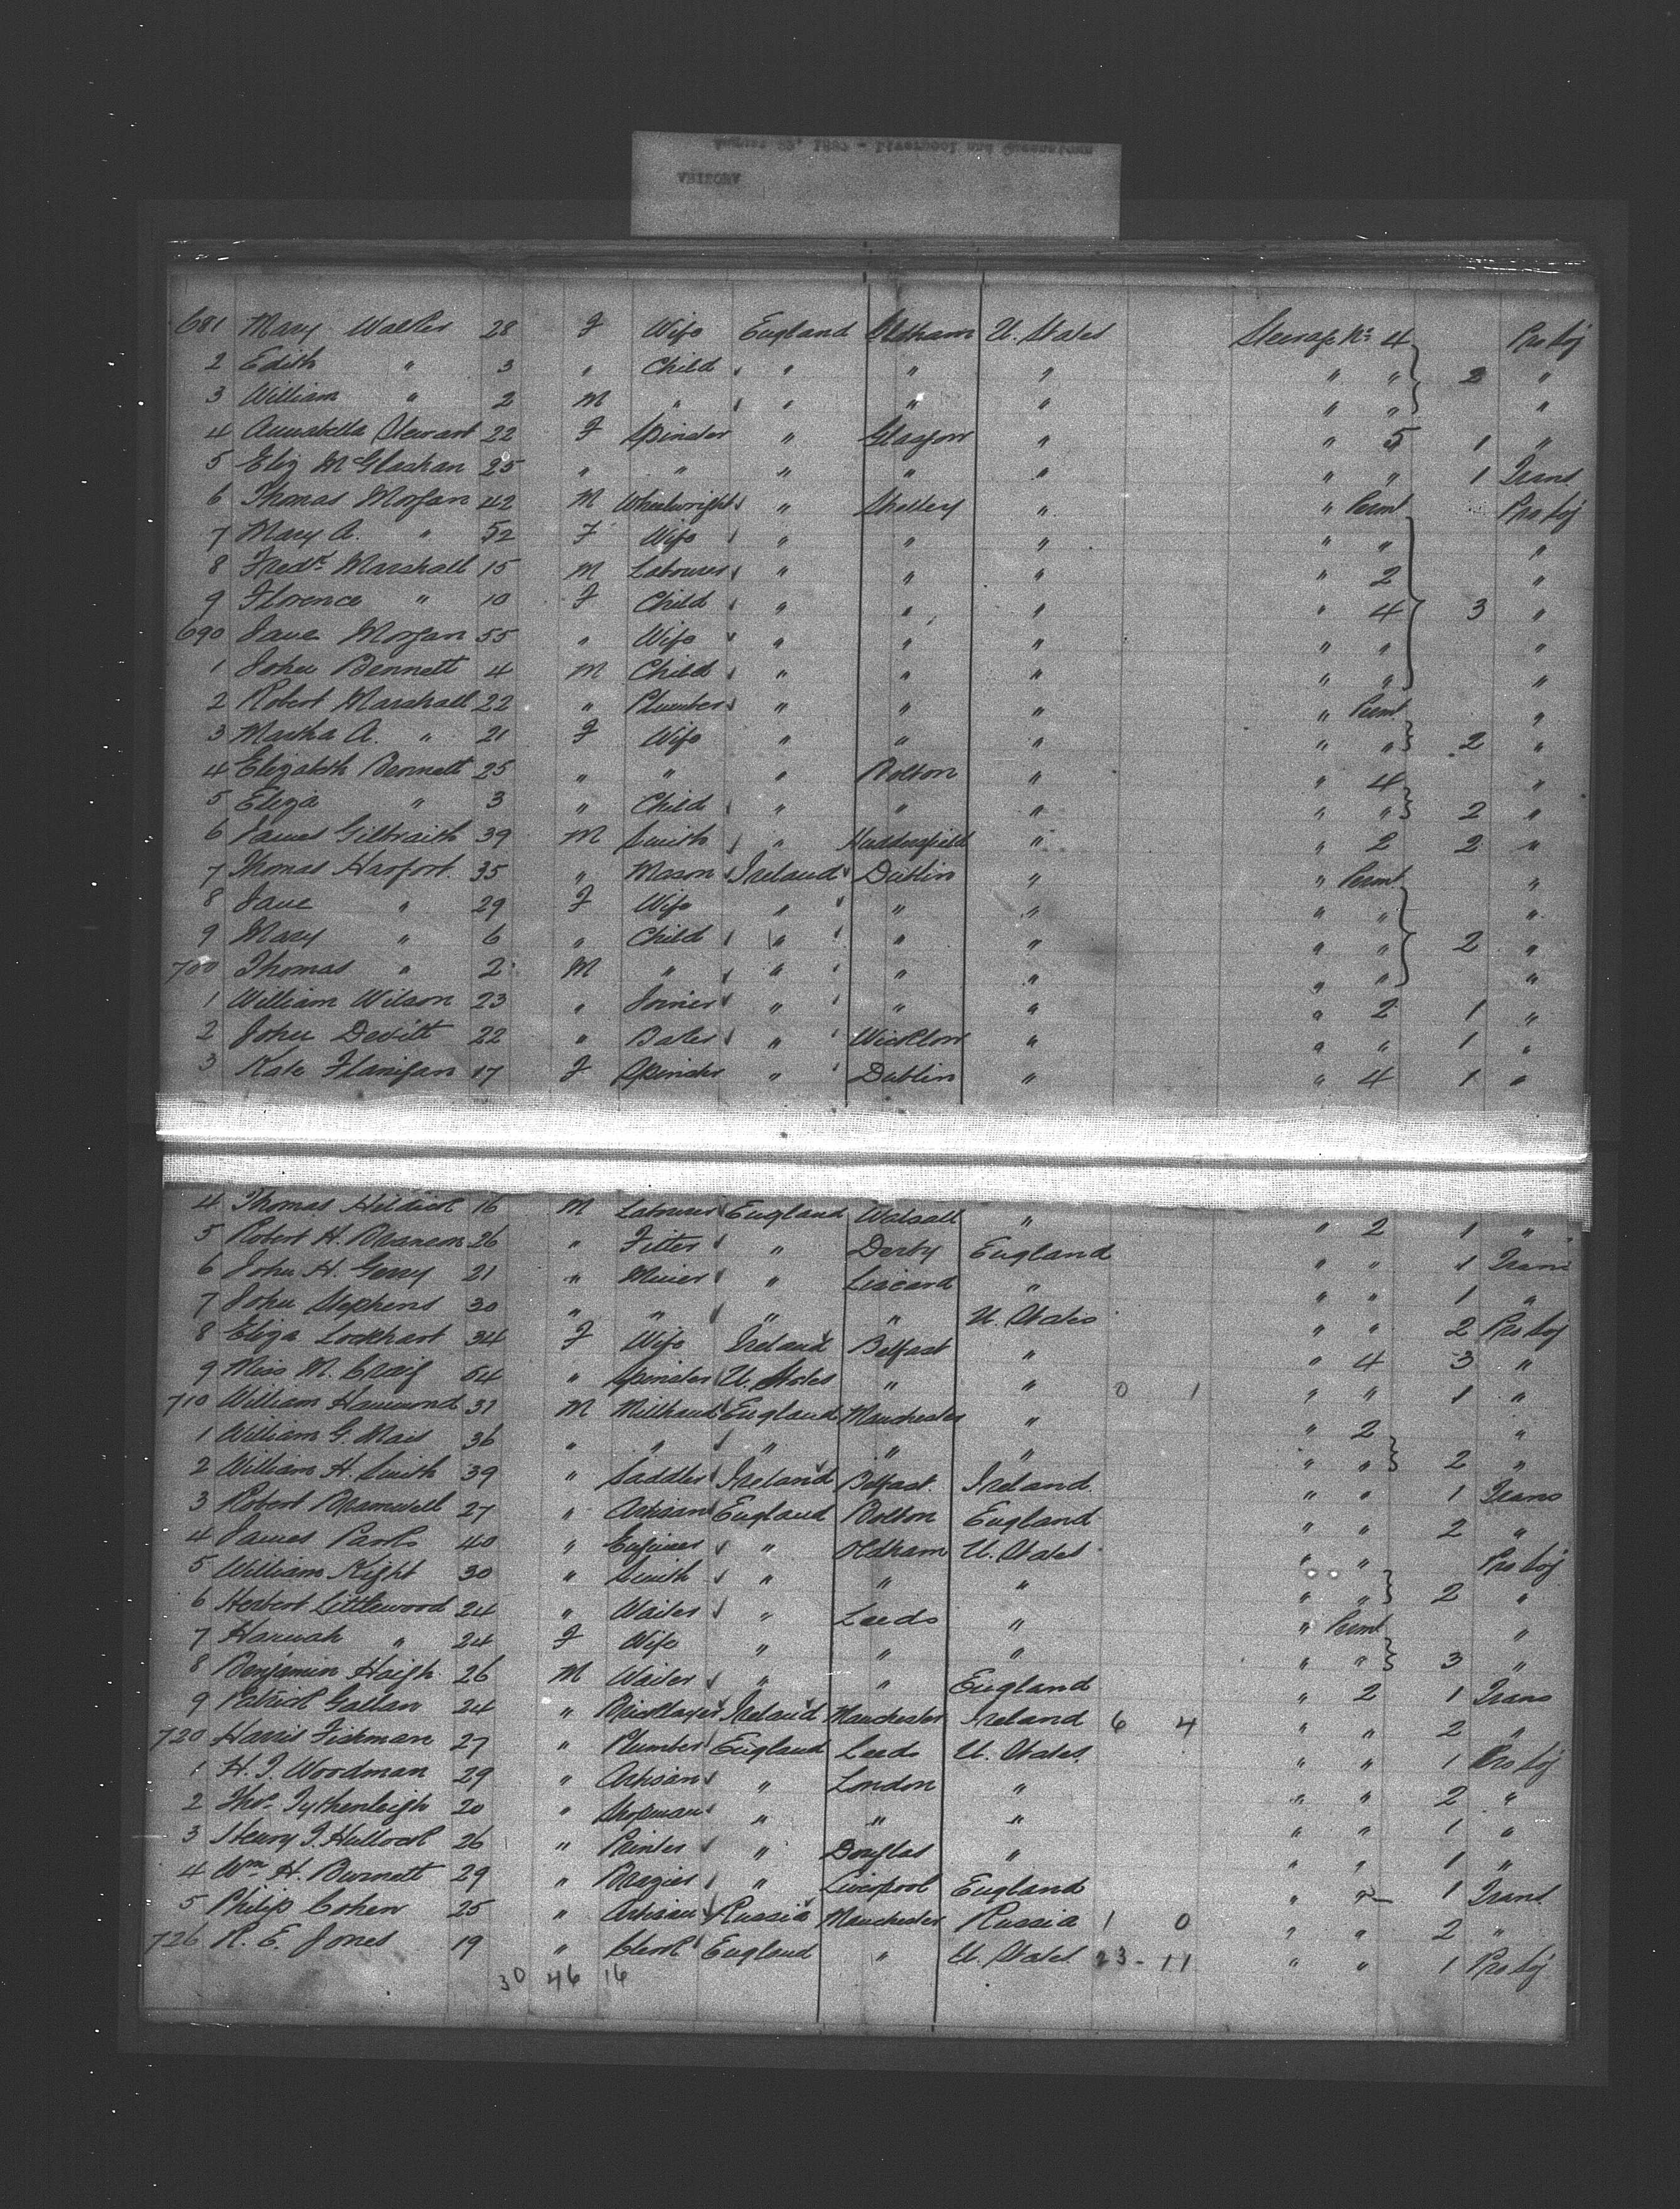 August 22, 1887 - Liverpool and Queenstown
ARIZONA
681 Mary Walker 28 F Wife England Oldham U. States Steerage No 4 Pro Soj
2 Edith " 3 " Child " " " " " 2 "
3 William " 2 M " " " " " " "
4 Annabella Stewart 22 F Spinster " Glasgow " " 5 1 "
5 Eliz McGlashan 25 " " " " " " " 1 Trans
6 Thomas Morgan 42 M Wheelwright " Shelley " " Permt Pro Soj
7 Mary A. " 52 F Wife " " " " " "
8 Fredk Marshall 15 M Labourer " " " " 2 "
9 Florence " 10 F Child " " " " 4 3 "
690 Jane Morgan 55 " Wife " " " " " "
1 John Bennett 4 M Child " " " " " "
2 Robert Marshall 22 " Plumber " " " " Permt "
3 Martha A. " 21 F Wife " " " " " 2 "
4 Elizabeth Bennett 25 " " " Bolton " " 4 "
5 Eliza " 3 " Child " " " " " 2 "
6 James Gilbraith 39 M Smith " Huddersfield " " 2 2 "
7 Thomas Harfort. 35 " Mason Ireland Dublin " " Permt "
8 Jane " 29 F Wife " " " " " "
9 Mary " 6 " Child " " " " " 2 "
700 Thomas " 2 M " " " " " " "
1 William Wilson 23 " Joiner " " " " 2 1 "
2 John Devitt 22 " Baker " Wicklow " " " 1 "
3 Kate Flanigan 17 F Spinster " Dublin " " 4 1 "
4 Thomas 16 M Labourer England Walsall " " 2 1 "
5 Robert H. 26 " Fitter " Derby England " " 1 Trans
6 John H. Gerry 21 " Miner " Liscard " " " 1 "
7 John Stephens 30 " " " " U. States " " 2 Pro Soj
8 Eliza Lockhart 34 F Wife Ireland Belfast " " 4 3 "
9 Miss M. Craig 54 " Spinster U. States " " 0 1 " " 1 "
710 William Hammond 31 M Millhand England Manchester " " 2 "
1 William G. Mais 36 " " " " " " " 2 "
2 William H. Smith 39 " Saddler Ireland Belfast. Ireland. " " 1 Trans
3 Robert Bramwell 27 " Artisan England Bolton England " " 2 "
4 James Park 40 " Engineer " Oldham U. States " " Pro Soj
5 William Kight 30 " Smith " " " " " 2 "
6 Herbert Littlewood 24 " Waiter " Leeds " " Permt "
7 Hannah " 24 F Wife " " " " " 3 "
8 Benjamin Haigh 26 M Waiter " " England " 2 1 Trans
9 Patrick Gallan 24 " Bricklayer Ireland Manchester Ireland 6 4 " " 2 "
720 Harris Fishman 27 " Plumber England Leeds U. States " " 1 Pro Soj
1 H. J. Woodman 29 " Artisan " London " " " 2 "
2 Thos. Tytherleigh 20 " Shopman " " " " " 1 "
3 Henry J. Hullock 26 " Printer " Douglas " " " 1 "
4 Wm H. Burnett 29 " Brazier " Liverpool England " " 1 Trans
5 Philip Cohen 25 " Artisan Russia Manchester Russia 1 0 " " 2 "
726 R. E. Jones 19 " Clerk England " U. States 23 - 11 " " 1 Pro Soj
30 46 16